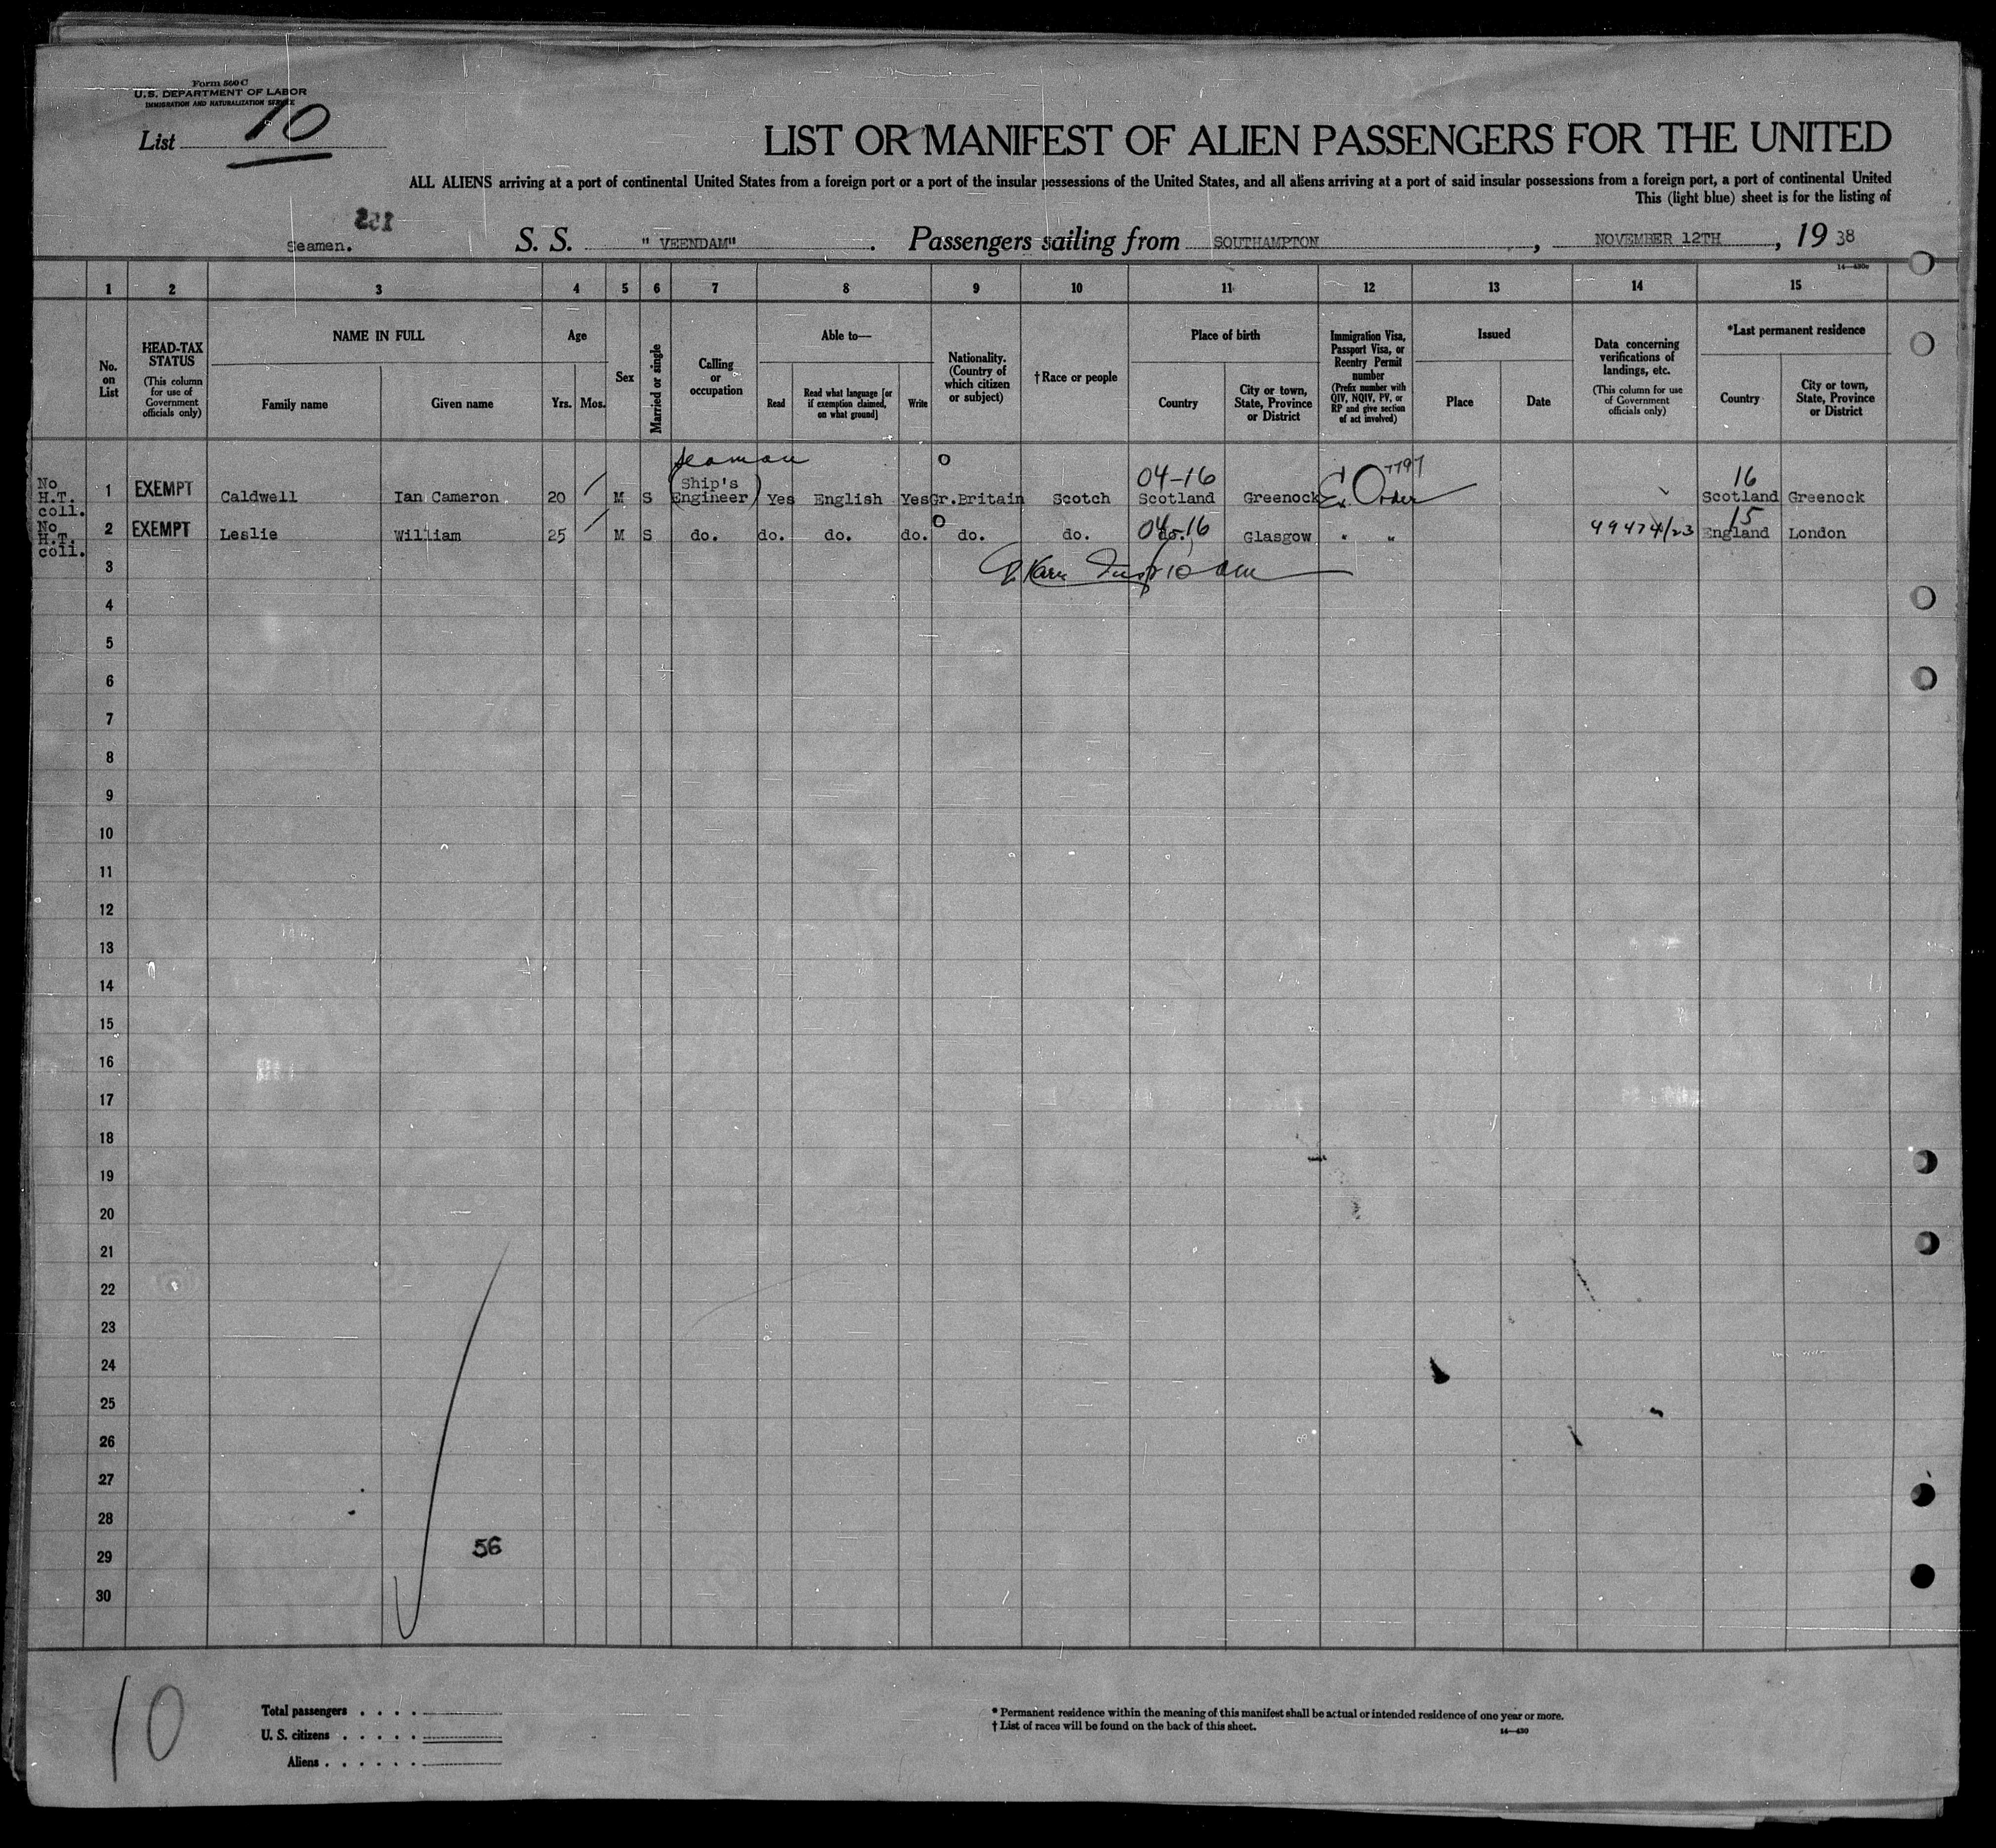 Form 500 C
U.S. DEPARTMENT OF LABOR
IMMIGRATION AND NATURALIZATION SERVICE
List 10
LIST OR MANIFEST OF ALIEN PASSENGERS FOR THE UNITED
ALL ALIENS arriving at a port of continental United States from a foreign port or a port of the insular possessions of the United States, and all aliens arriving at a port of said insular possessions from a foreign port, a port of continental United
This (light blue) sheet is for the listing of
Seamen. S. S. " VEENDAM" . Passengers sailing from SOUTHAMPTON , NOVEMBER 12TH , 19 38
1 2 3 4 5 6 7 8 9 10 11 12 13 14 15
No. on List
HEAD-TAX STATUS
(This column for use of Government officials only)
NAME IN FULL
Family name
Given name
Age
Yrs. Mos.
Sex
Married or single
Calling or occupation
Able to—
Read
Read what language [or if exemption claimed, on what ground]
Write
Nationality. (Country of which citizen or subject)
†Race or people
Place of birth
Country
City or town, State, Province or District
Immigration Visa, Passport Visa, or Reentry Permit number
(Prefix number with QIV, NQIV, PV, or RP and give section of act involved)
Issued
Place
Date
Data concerning verifications of landings, etc.
(This column for use of Government officials only)
*Last permanent residence
Country
City or town, State, Province or District
Seaman 04-16 7797 16
No H.T. coll. 1 EXEMPT Caldwell Ian Cameron 20 M S (Ship's Engineer) Yes English Yes Gr.Britain Scotch Scotland Greenock Ex. Order Scotland Greenock
04-16 15
No H.T. coll. 2 EXEMPT Leslie William 25 M S do. do. do. do. do. do. do. Glasgow " " 99474/23 England London
3
4
5
6
7
8
9
10
11
12
13
14
15
16
17
18
19
20
21
22
23
24
25
26
27
28
29
30
56
10
Total passengers . . . .
U. S. citizens . . . . .
Aliens . . . . . .
* Permanent residence within the meaning of this manifest shall be actual or intended residence of one year or more.
† List of races will be found on the back of this sheet.
14—430